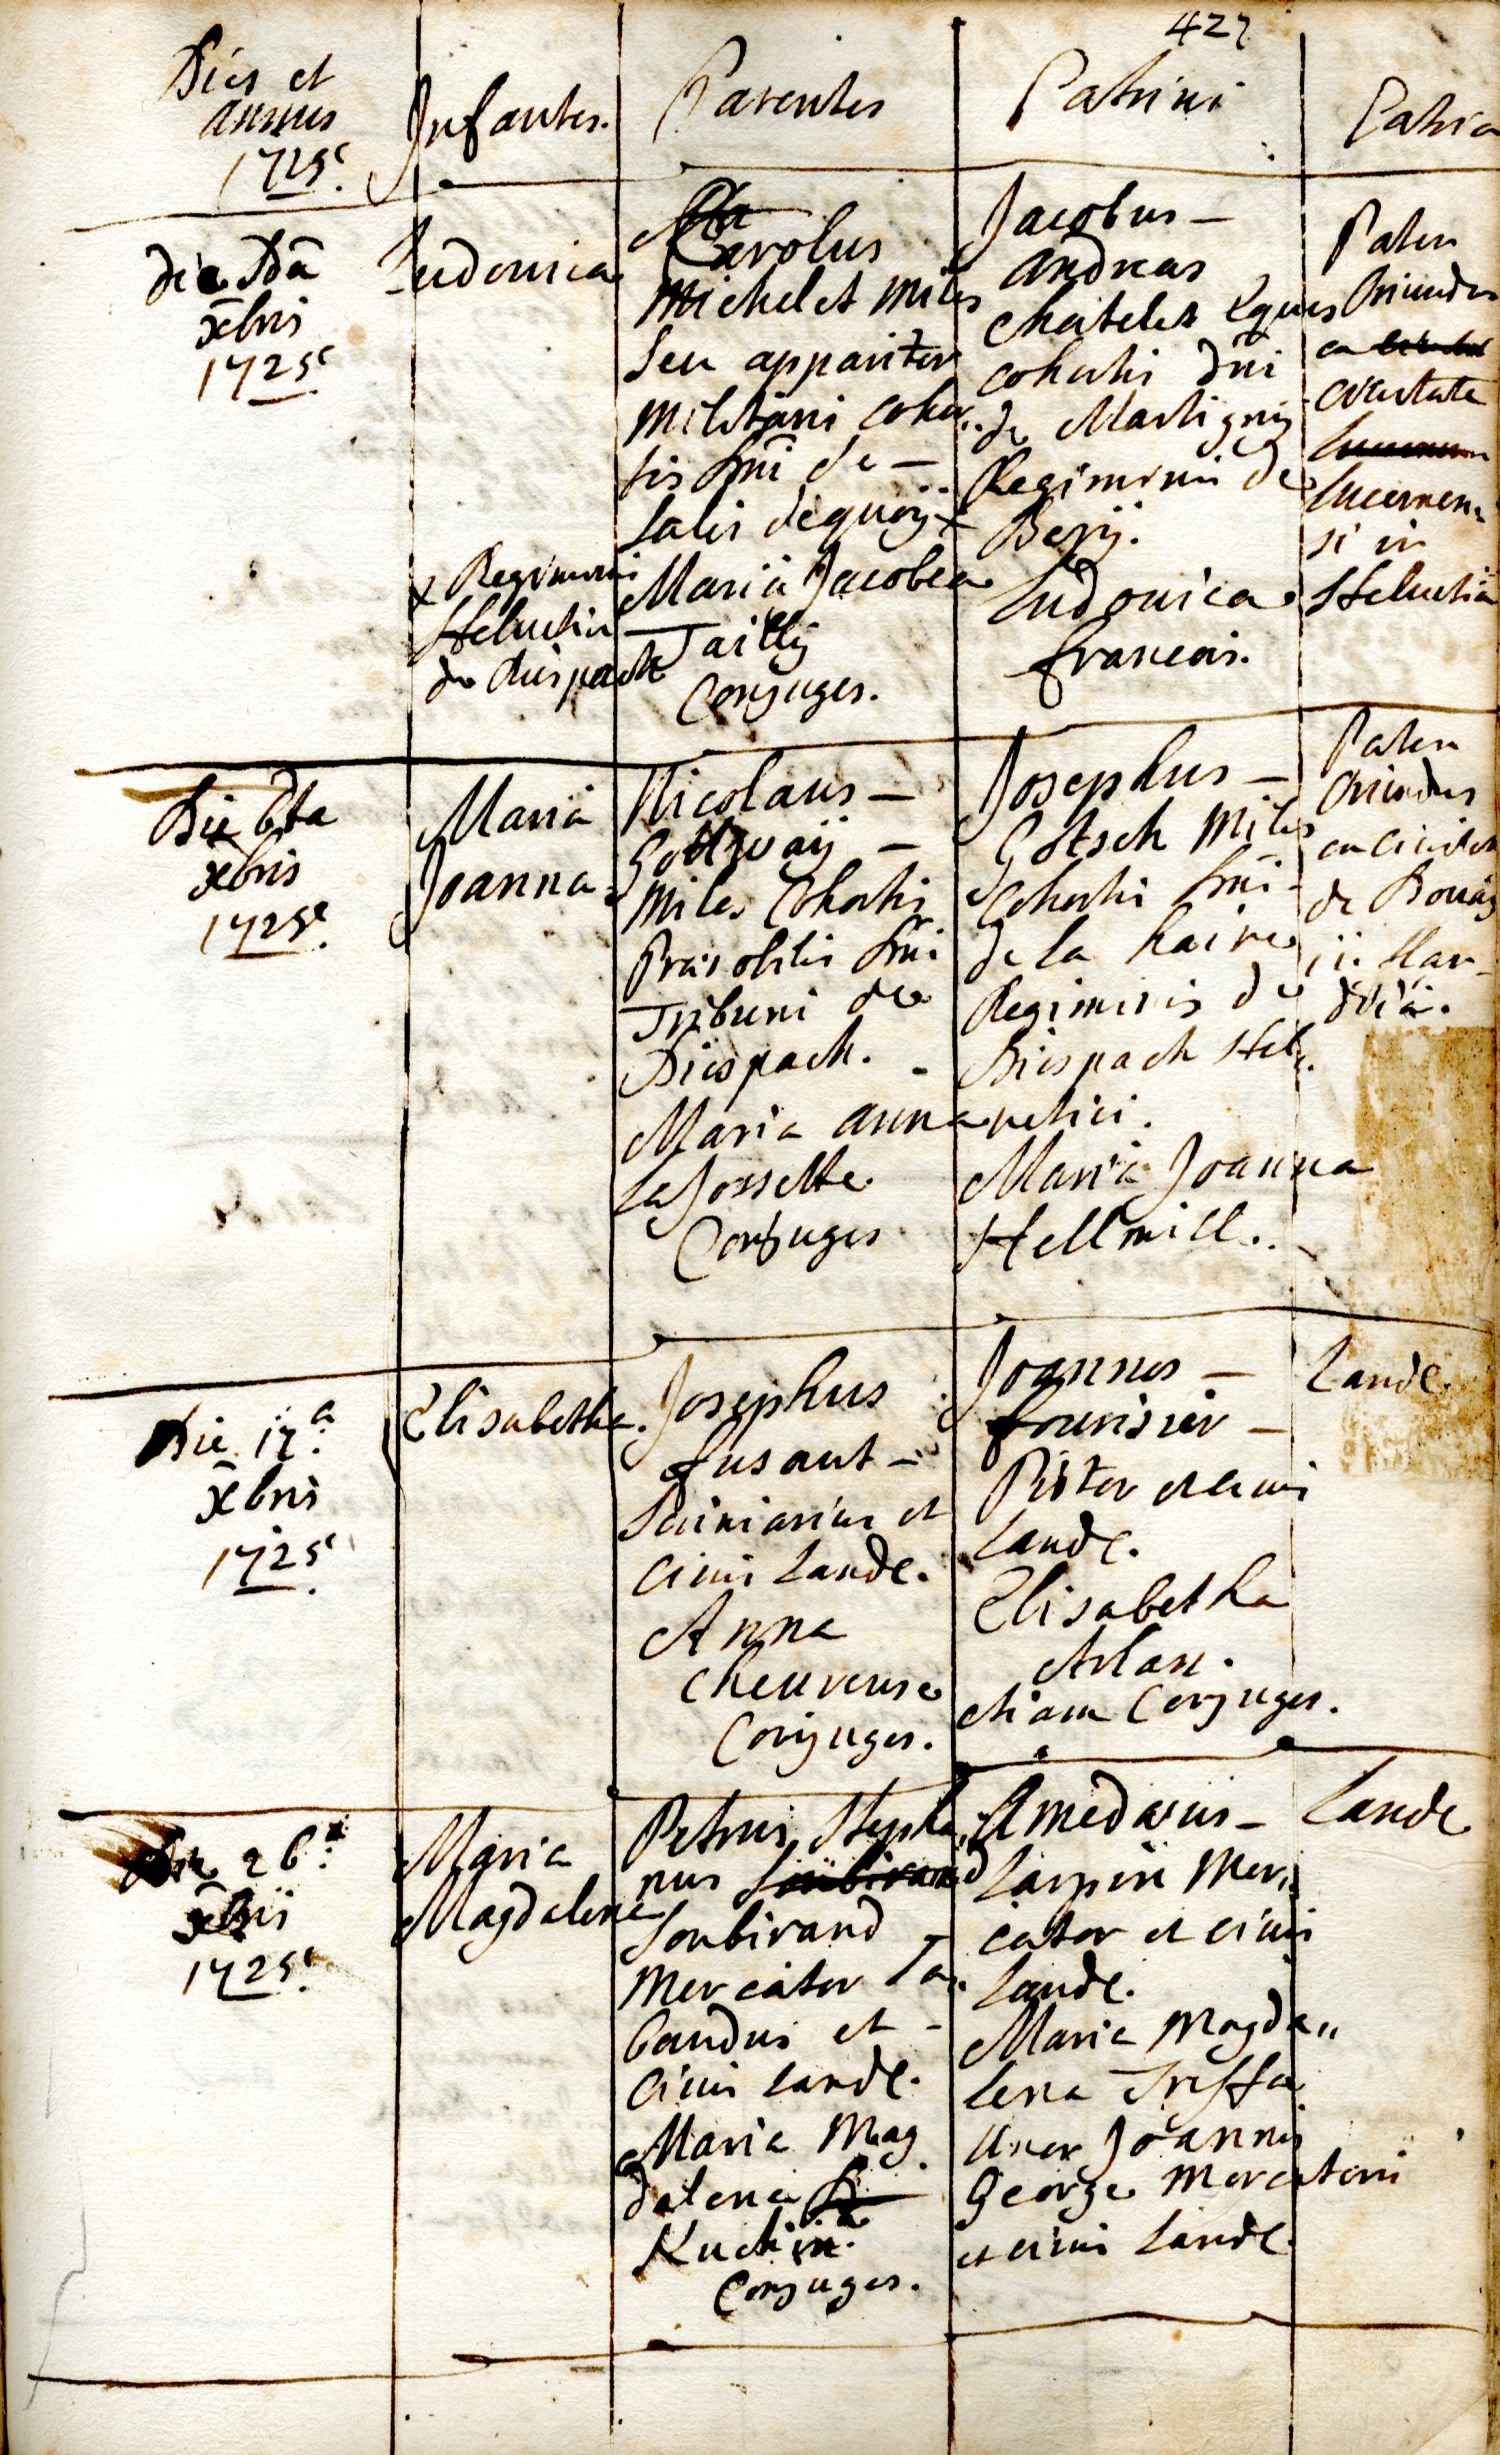 427
Dies et
annus
1725.
Infantes.
Parentes
Patrini
Patria
die
xbris
1725.
Ludovica
Carolus
Michelet Miles
seu appariter
militaris cohor..
tis dni de —
Salis dequoy x
Maria Jacobea
Tailly
Conjuges.
x Regiminis
Helvetia
de diespach
Jacobus —
Andreas
Chatelet Eques
cohortis dni
de Martigny
Regiminis de
Bery.
Ludovica
francois.
Pater
Oriundus
ex
civitate
lucernen..
si in
Helvetiâ
Die 6ta
xbris
1725.
Maria
Joanna.
Nicolaus —
—
miles Cohortis
Prænobilis dni
Tribuni de
Diespach.
Maria anna
La Jossette
Conjuges
Josephus —
Gotsch miles
Cohortis dni
de la haire
Regiminis de
Diespach Hel..
vetici.
Maria Joanna
Hellmill.
Pater
Oriundus
ex civitate
de Bouay
in flan-
driâ.
Die 17.a
xbris
1725
Elisabetha.
Josephus
fusaut —
et
civis Landæ.
Anna
Cheureuse
Conjuges.
Joannes —
fourisier —
Pistor et civis
Landæ.
Elisabetha
Arlan.
etiam Conjuges.
Landæ.
Die 26.a
xbris
1725.
Maria
Magdalena
Petrus Stepha..
nus Soubirand
Soubirand
mercator Ta..
bandus et —
civis Landæ.
Maria Mag
dalena
Kuchin.
Conjuges.
Amedæus —
Larpin Mer..
cator et civis
Landæ.
Maria Magda..
lena Treffa
Uxor Joannis
George Mercatoris
et civis Landæ.
Landæ